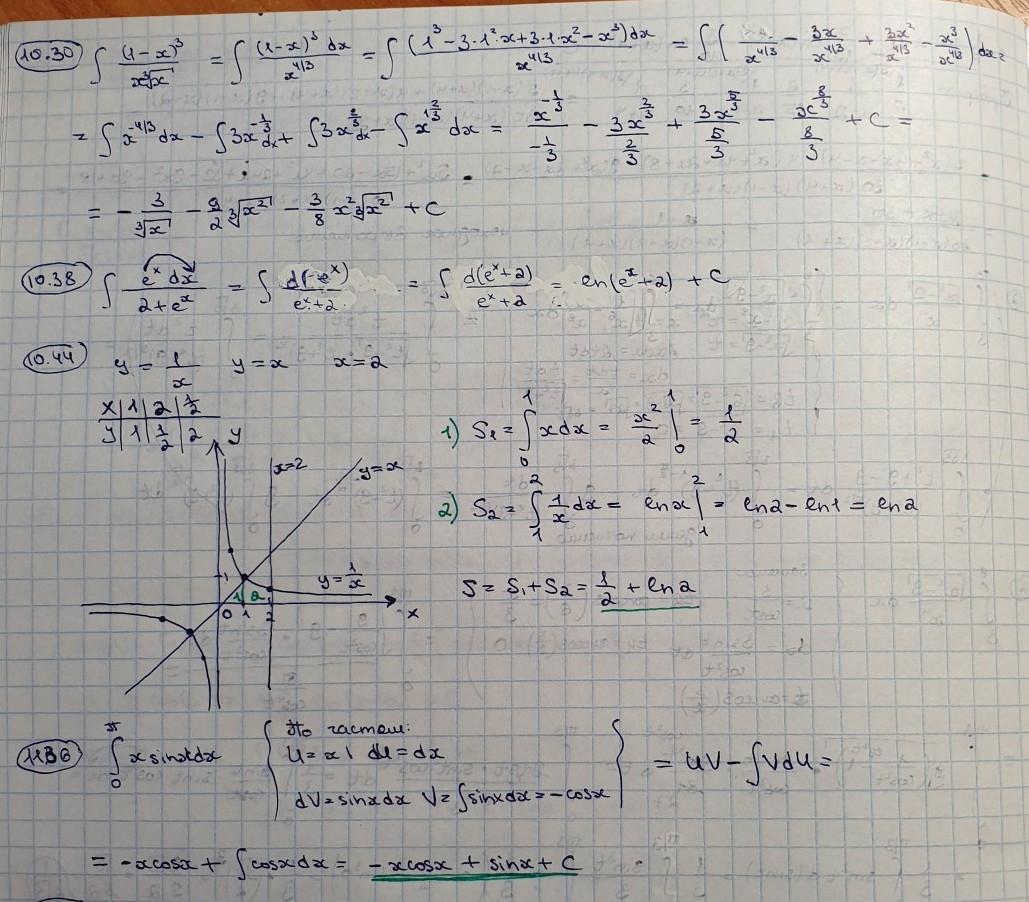 10.30 ∫ (1-x)³/(x∛x) = ∫ (1-x)³dx/x^(4/3) = ∫ (1³-3·1²·x+3·1·x²-x³)dx/x^(4/3) = ∫( /x^(4/3) - 3x/x^(4/3) + 3x²/x^(4/3) - x³/x^(4/3))dx=
= ∫x^(-4/3)dx - ∫3x^(-1/3)dx + ∫3x^(2/3)dx - ∫x^(1 2/3)dx = x^(-1/3)/(-1/3) - 3x^(2/3)/(2/3) + 3x^(5/3)/(5/3) - x^(8/3)/(8/3) + C =
= - 3/∛x - 9/2 ∛x² - 3/8 x² ∛x² + C
10.38 ∫ eˣdx/(2+eˣ) = ∫ d(eˣ)/(eˣ+2) = ∫ d(eˣ+2)/(eˣ+2) = ln(eˣ+2) + C
10.44 y = 1/x y=x x=2
x | 1 | 2 | 1/2
y | 1 | 1/2 | 2
y
x=2
y=x
1) S₁ = ∫₀¹ xdx = x²/2 |₀¹ = 1/2
2) S₂ = ∫₁² 1/x dx = lnx |₁² = ln2 - ln1 = ln2
1
y=1/x
S = S₁+S₂ = 1/2 + ln2
1 2
0 1 2 x
11.36 ∫₀^π x sinxdx { По частям:
U=x | dU=dx
dV=sinxdx V=∫sinxdx=-cosx } = UV-∫VdU=
= -xcosx + ∫cosxdx = -xcosx + sinx + C